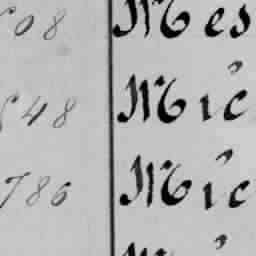 08 Mes
548 Mic
786 Mic